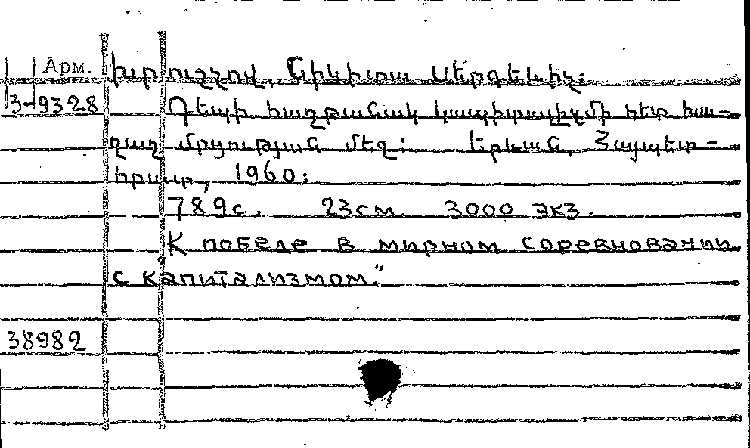 Арм. Խրուշչով, Նիկիտա Սերգեևիչ:
3-9328 Դեպի հաղթանակ կապիտալիզմի հետ խա-
ղաղ մրցության մեջ: Երևան, Հայպետ-
հրատ, 1960:
789с. 23см 3000 экз.
К победе в мирном соревновании
с капитализмом."
38982